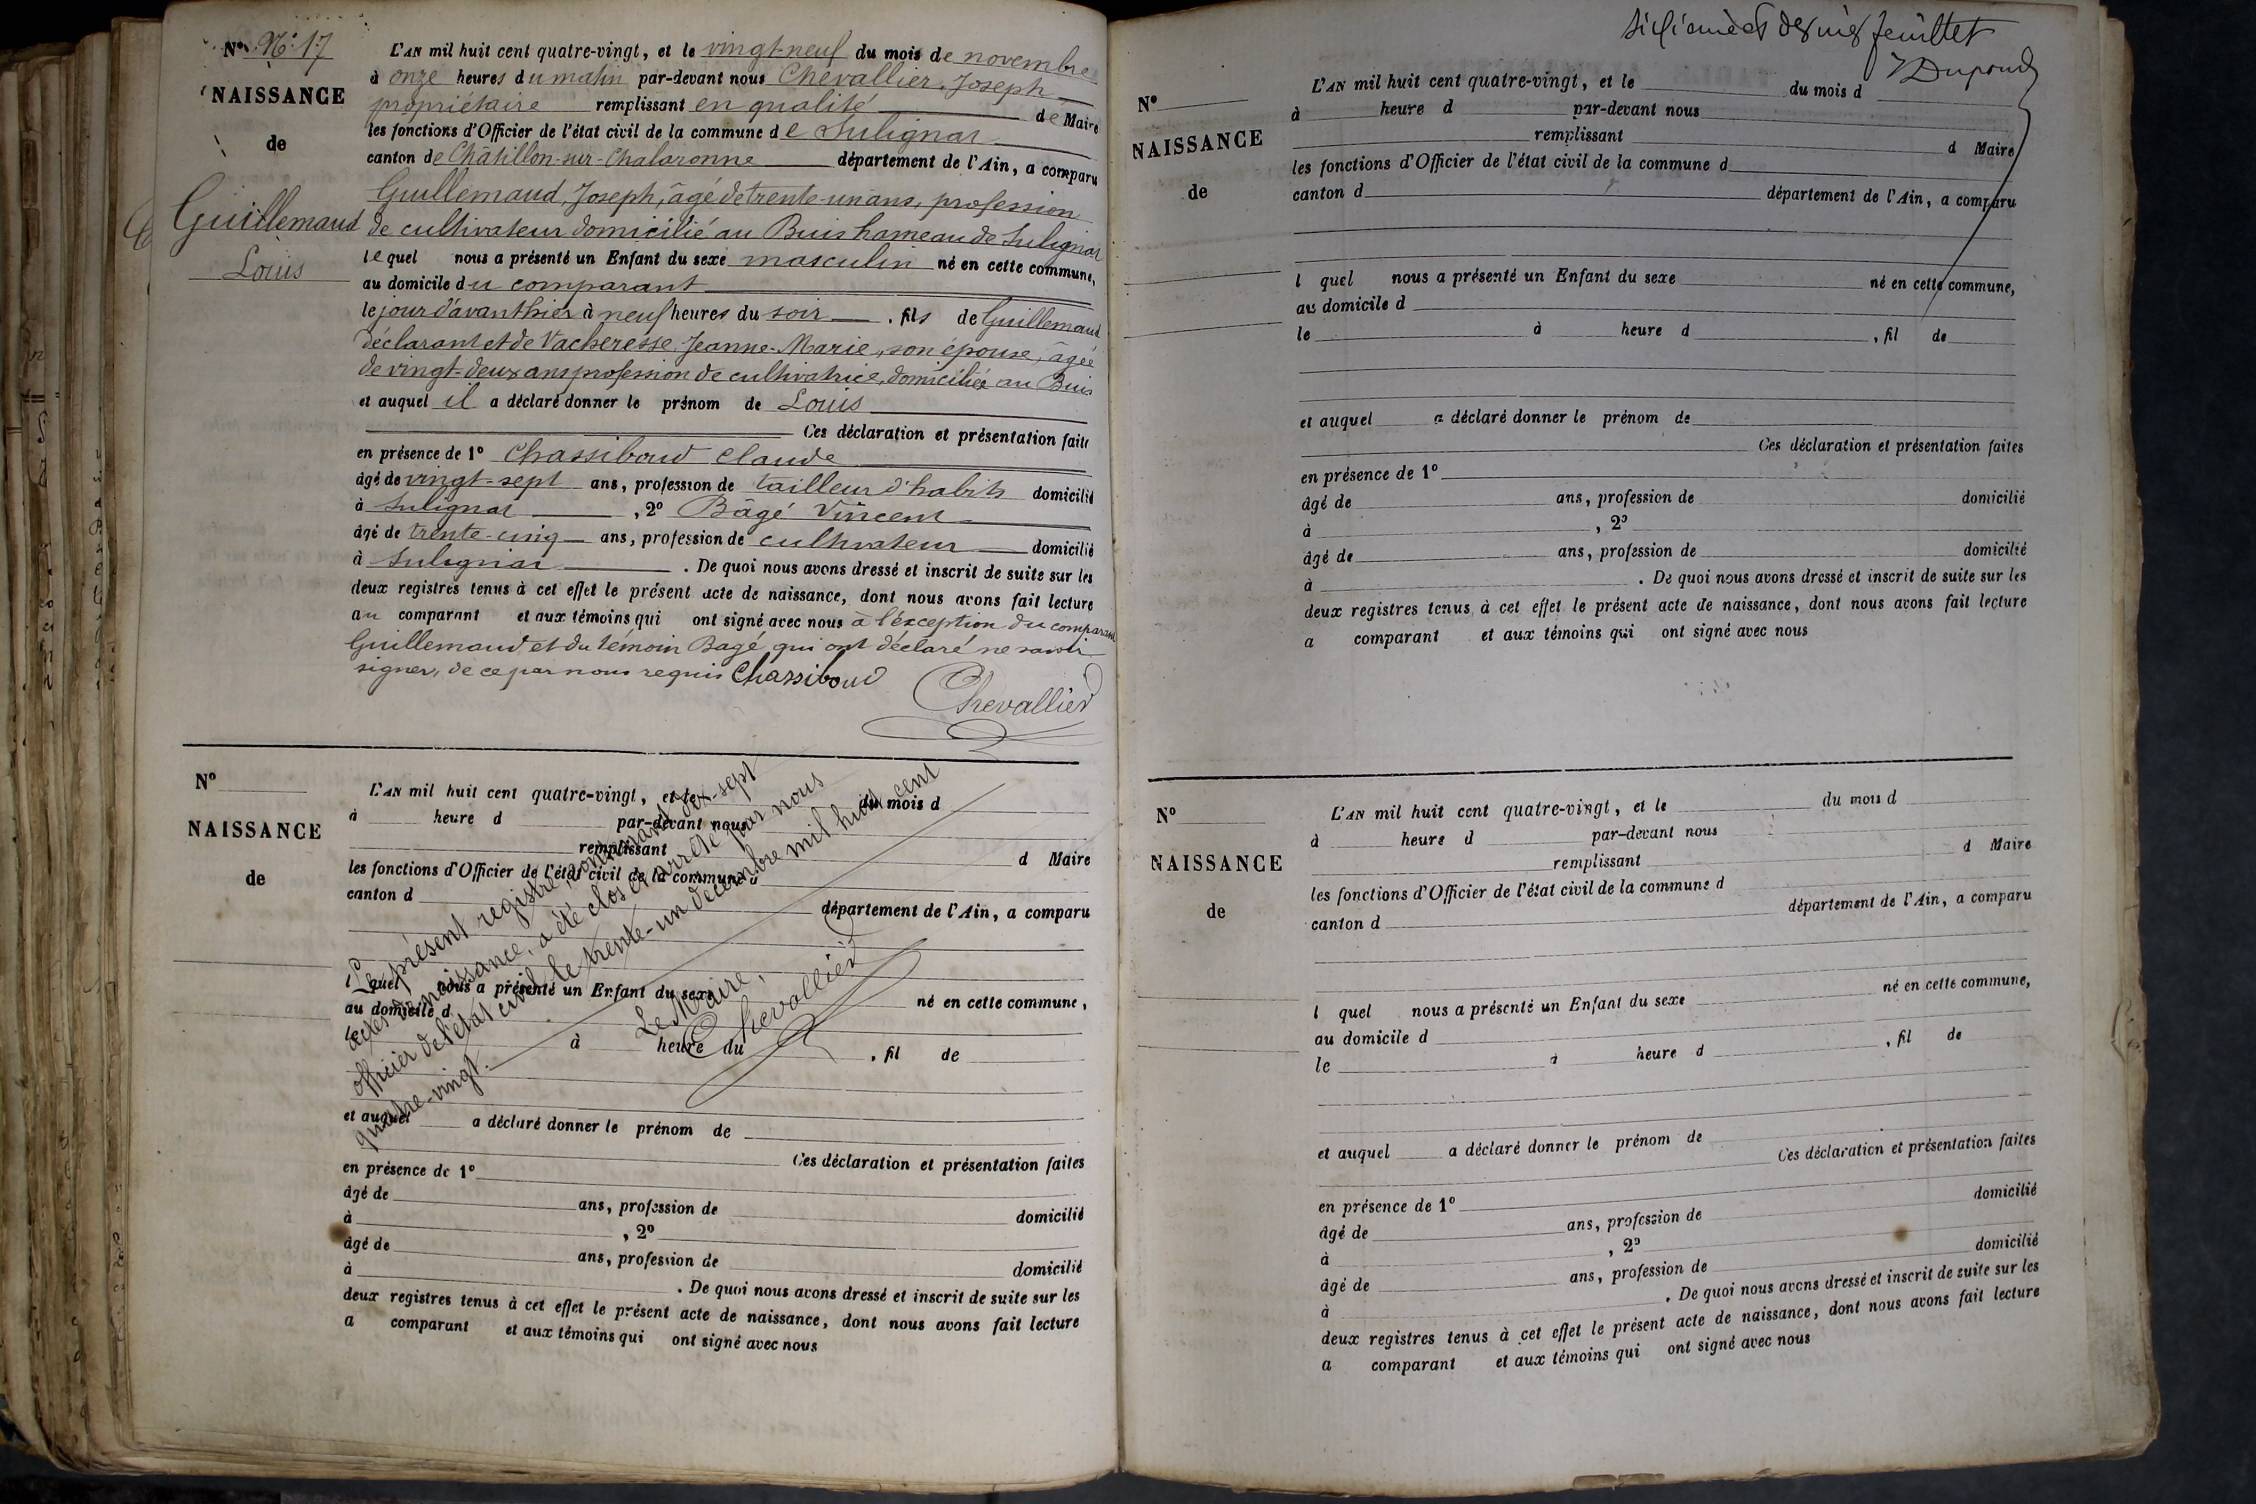 N° N° 17
NAISSANCE
de
Guillemaud
Louis
L'AN mil huit cent quatre-vingt, et le vingt-neuf du mois de novembre
à onze heures du matin par-devant nous Chevallier, Joseph
propriétaire remplissant en qualité de Maire
les fonctions d'Officier de l'état civil de la commune de Sulignat
canton de Châtillon-sur-Chalaronne département de l'Ain, a comparu
Guillemaud, Joseph, âgé de trente-un ans, profession
de cultivateur domicilié au Buis hameau de Sulignat
lequel nous a présenté un Enfant du sexe masculin né en cette commune,
au domicile du comparant
le jour d'avant hier à neuf heures du soir, fils de Guillemaud
déclarant et de Vacheresse, Jeanne-Marie, son épouse, âgée
de vingt-deux ans profession de cultivatrice, domiciliée au Buis
et auquel il a déclaré donner le prénom de Louis
Ces déclaration et présentation faites
en présence de 1° Chassiboud Claude
âgé de vingt-sept ans, profession de tailleur d'habits domicilié
à Sulignat, 2° Bâgé Vincent
âgé de trente-cinq ans, profession de cultivateur domicilié
à Sulignat. De quoi nous avons dressé et inscrit de suite sur les
deux registres tenus à cet effet le présent acte de naissance, dont nous avons fait lecture
au comparant et aux témoins qui ont signé avec nous à l'éxception du comparant
Guillemaud et du témoin Bagé qui ont déclaré ne savoir
signer, de ce par nous requis Chassiboud
Chevallier
N°
NAISSANCE
de
L'AN mil huit cent quatre-vingt, et le du mois d
à heure d par-devant nous
remplissant d Maire
les fonctions d'Officier de l'état civil de la commune d
canton d département de l'Ain, a comparu
l quel nous a présenté un Enfant du sexe né en cette commune,
au domicile d
le à heure du, fil de
et auquel a déclaré donner le prénom de
Ces déclaration et présentation faites
en présence de 1°
âgé de ans, profession de domicilié
à, 2°
âgé de ans, profession de domicilié
à. De quoi nous avons dressé et inscrit de suite sur les
deux registres tenus à cet effet le présent acte de naissance, dont nous avons fait lecture
a comparant et aux témoins qui ont signé avec nous
Le présent registre, contenant dix-sept
actes de naissance, a été clos et arrêté par nous
officier de l'état civil le trente-un décembre mil huit cent
quatre-vingt.
Le Maire,
Chevallier
sixième et dernier feuillet
Dupond
N°
NAISSANCE
de
L'AN mil huit cent quatre-vingt, et le du mois d
à heure d par-devant nous
remplissant d Maire
les fonctions d'Officier de l'état civil de la commune d
canton d département de l'Ain, a comparu
l quel nous a présenté un Enfant du sexe né en cette commune,
au domicile d
le à heure d, fil de
et auquel a déclaré donner le prénom de
Ces déclaration et présentation faites
en présence de 1°
âgé de ans, profession de domicilié
à, 2°
âgé de ans, profession de domicilié
à. De quoi nous avons dressé et inscrit de suite sur les
deux registres tenus à cet effet le présent acte de naissance, dont nous avons fait lecture
a comparant et aux témoins qui ont signé avec nous
N°
NAISSANCE
de
L'AN mil huit cent quatre-vingt, et le du mois d
à heure d par-devant nous
remplissant d Maire
les fonctions d'Officier de l'état civil de la commune d
canton d département de l'Ain, a comparu
l quel nous a présenté un Enfant du sexe né en cette commune,
au domicile d
le à heure d, fil de
et auquel a déclaré donner le prénom de
Ces déclaration et présentation faites
en présence de 1°
âgé de ans, profession de domicilié
à, 2°
âgé de ans, profession de domicilié
à. De quoi nous avons dressé et inscrit de suite sur les
deux registres tenus à cet effet le présent acte de naissance, dont nous avons fait lecture
a comparant et aux témoins qui ont signé avec nous